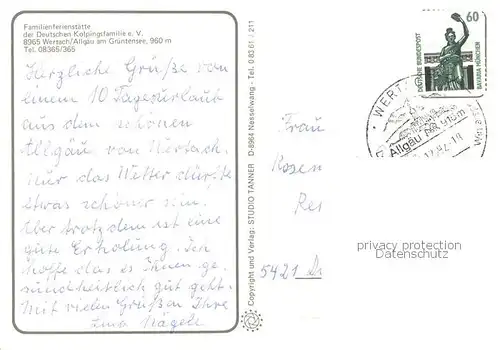 Familienferienstätte
der Deutschen Kolpingsfamilie e. V.
8965 Wertach/Allgäu am Grüntensee, 960 m
Tel. 08365/365
Herzliche Grüße von
einem 10 Tagesurlaub
aus dem schönen
Allgäu von Wertach.
Nur das Wetter dürfte
etwas schöner sein.
Aber trotzdem ist eine
gute Erholung. Ich
hoffe das es Ihnen ge.
sundheitlich gut geht.
Mit vielen Grüßen Ihre
Nägele
Copyright und Verlag: STUDIO TANNER D-8964 Nesselwang - Tel. 0 83 61 / 211
60
DEUTSCHE BUNDESPOST
BAVARIA MÜNCHEN
WERT
Allgäu
Frau
Rosen
Re
5421
privacy protection
Datenschutz